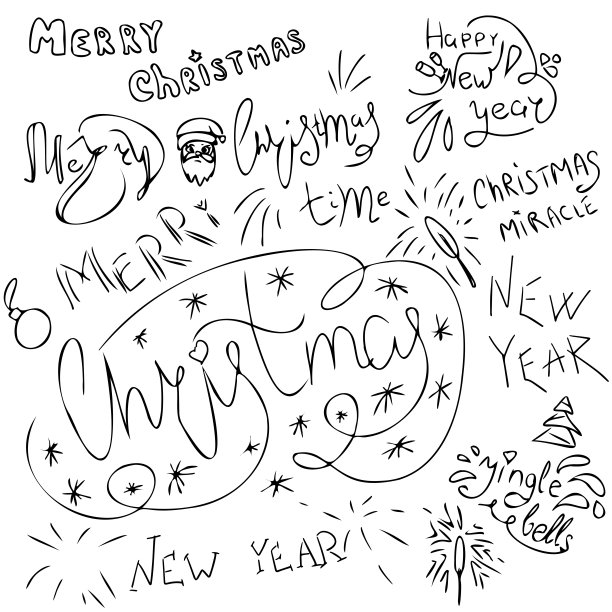 MERRY
CHRISTMAS
Happy
New
year
Merry
Christmas
time
CHRISTMAS
MIRACLE
MERRY
Christmas
NEW
YEAR
yingle
bells
NEW YEAR